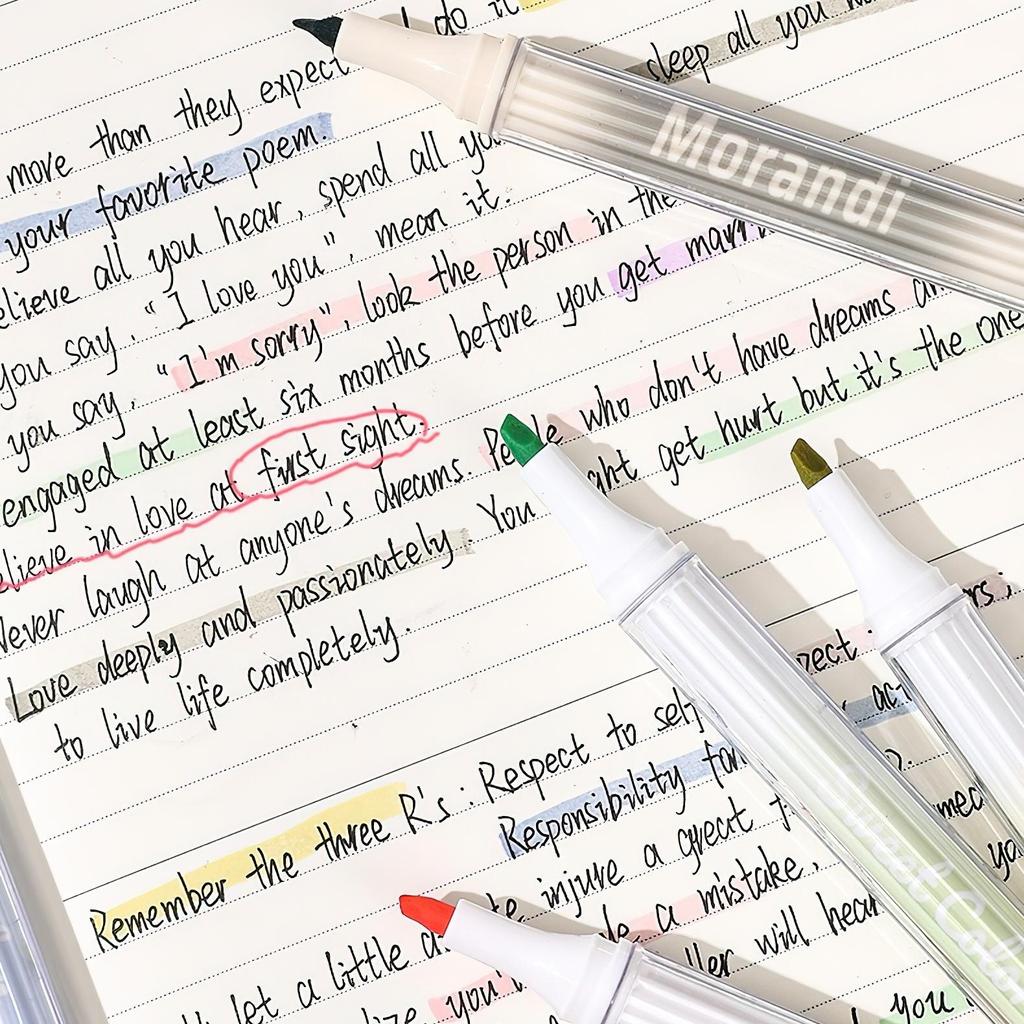 do it
sleep all you
more than they expect
your favorite poem.
believe all you hear, spend all you
you say, "I love you", mean it.
you say, "I'm sorry", look the person in the
engaged at least six months before you get marri
believe in love at first sight.
Never laugh at anyone's dreams. People who don't have dreams
Love deeply and passionately. You might get hurt but it's the one
to live life completely.
Remember the three R's: Respect to self
Respect
Responsibility for
let a little injure a great
a mistake,
will hear
you
Morandi
Sweet Color